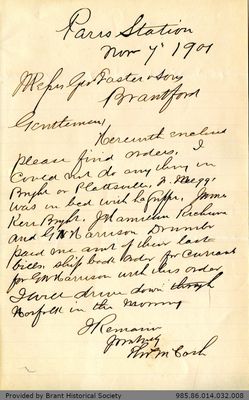 Paris Station
Nov 7 1901
Messrs Geo Foster & Sons
Brantford
Gentlemen,
Herewith enclosed
please find orders, I
could not do any thing in
Bright or Plattsville,
was in bed with La Grippe, James
Kerr Bright, J Hamilton
and G W Harrison Drumbo
paid me amt of their last
bills, ship order for Currants
for G W Harrison with this order
I will drive down through
Norfolk in the morning
I Remain
Yours truly
McCash
Provided by Brant Historical Society
985.86.014.032.008